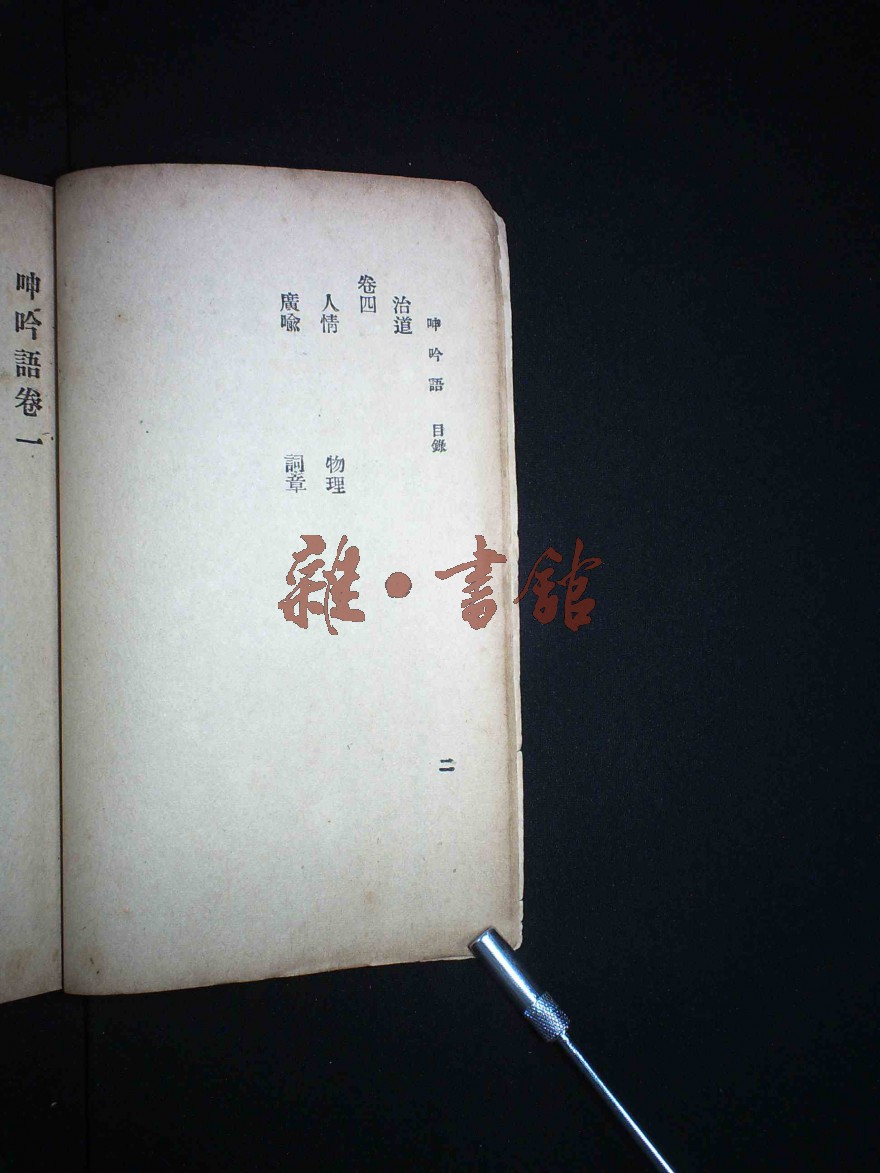 呻吟語 目錄
治道
卷四
人情 物理
廣喩 詞章
二
呻吟語卷一
雜·書館